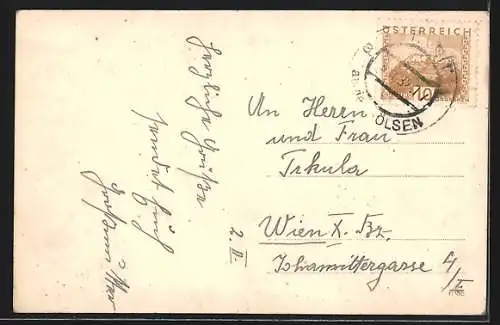 Herzliche Grüße
sendet Euch
2. II.
ÖSTERREICH
10
OLSEN
An Herrn
und Frau
Trkula
Wien X. Bz.
Johannitergasse 4/I